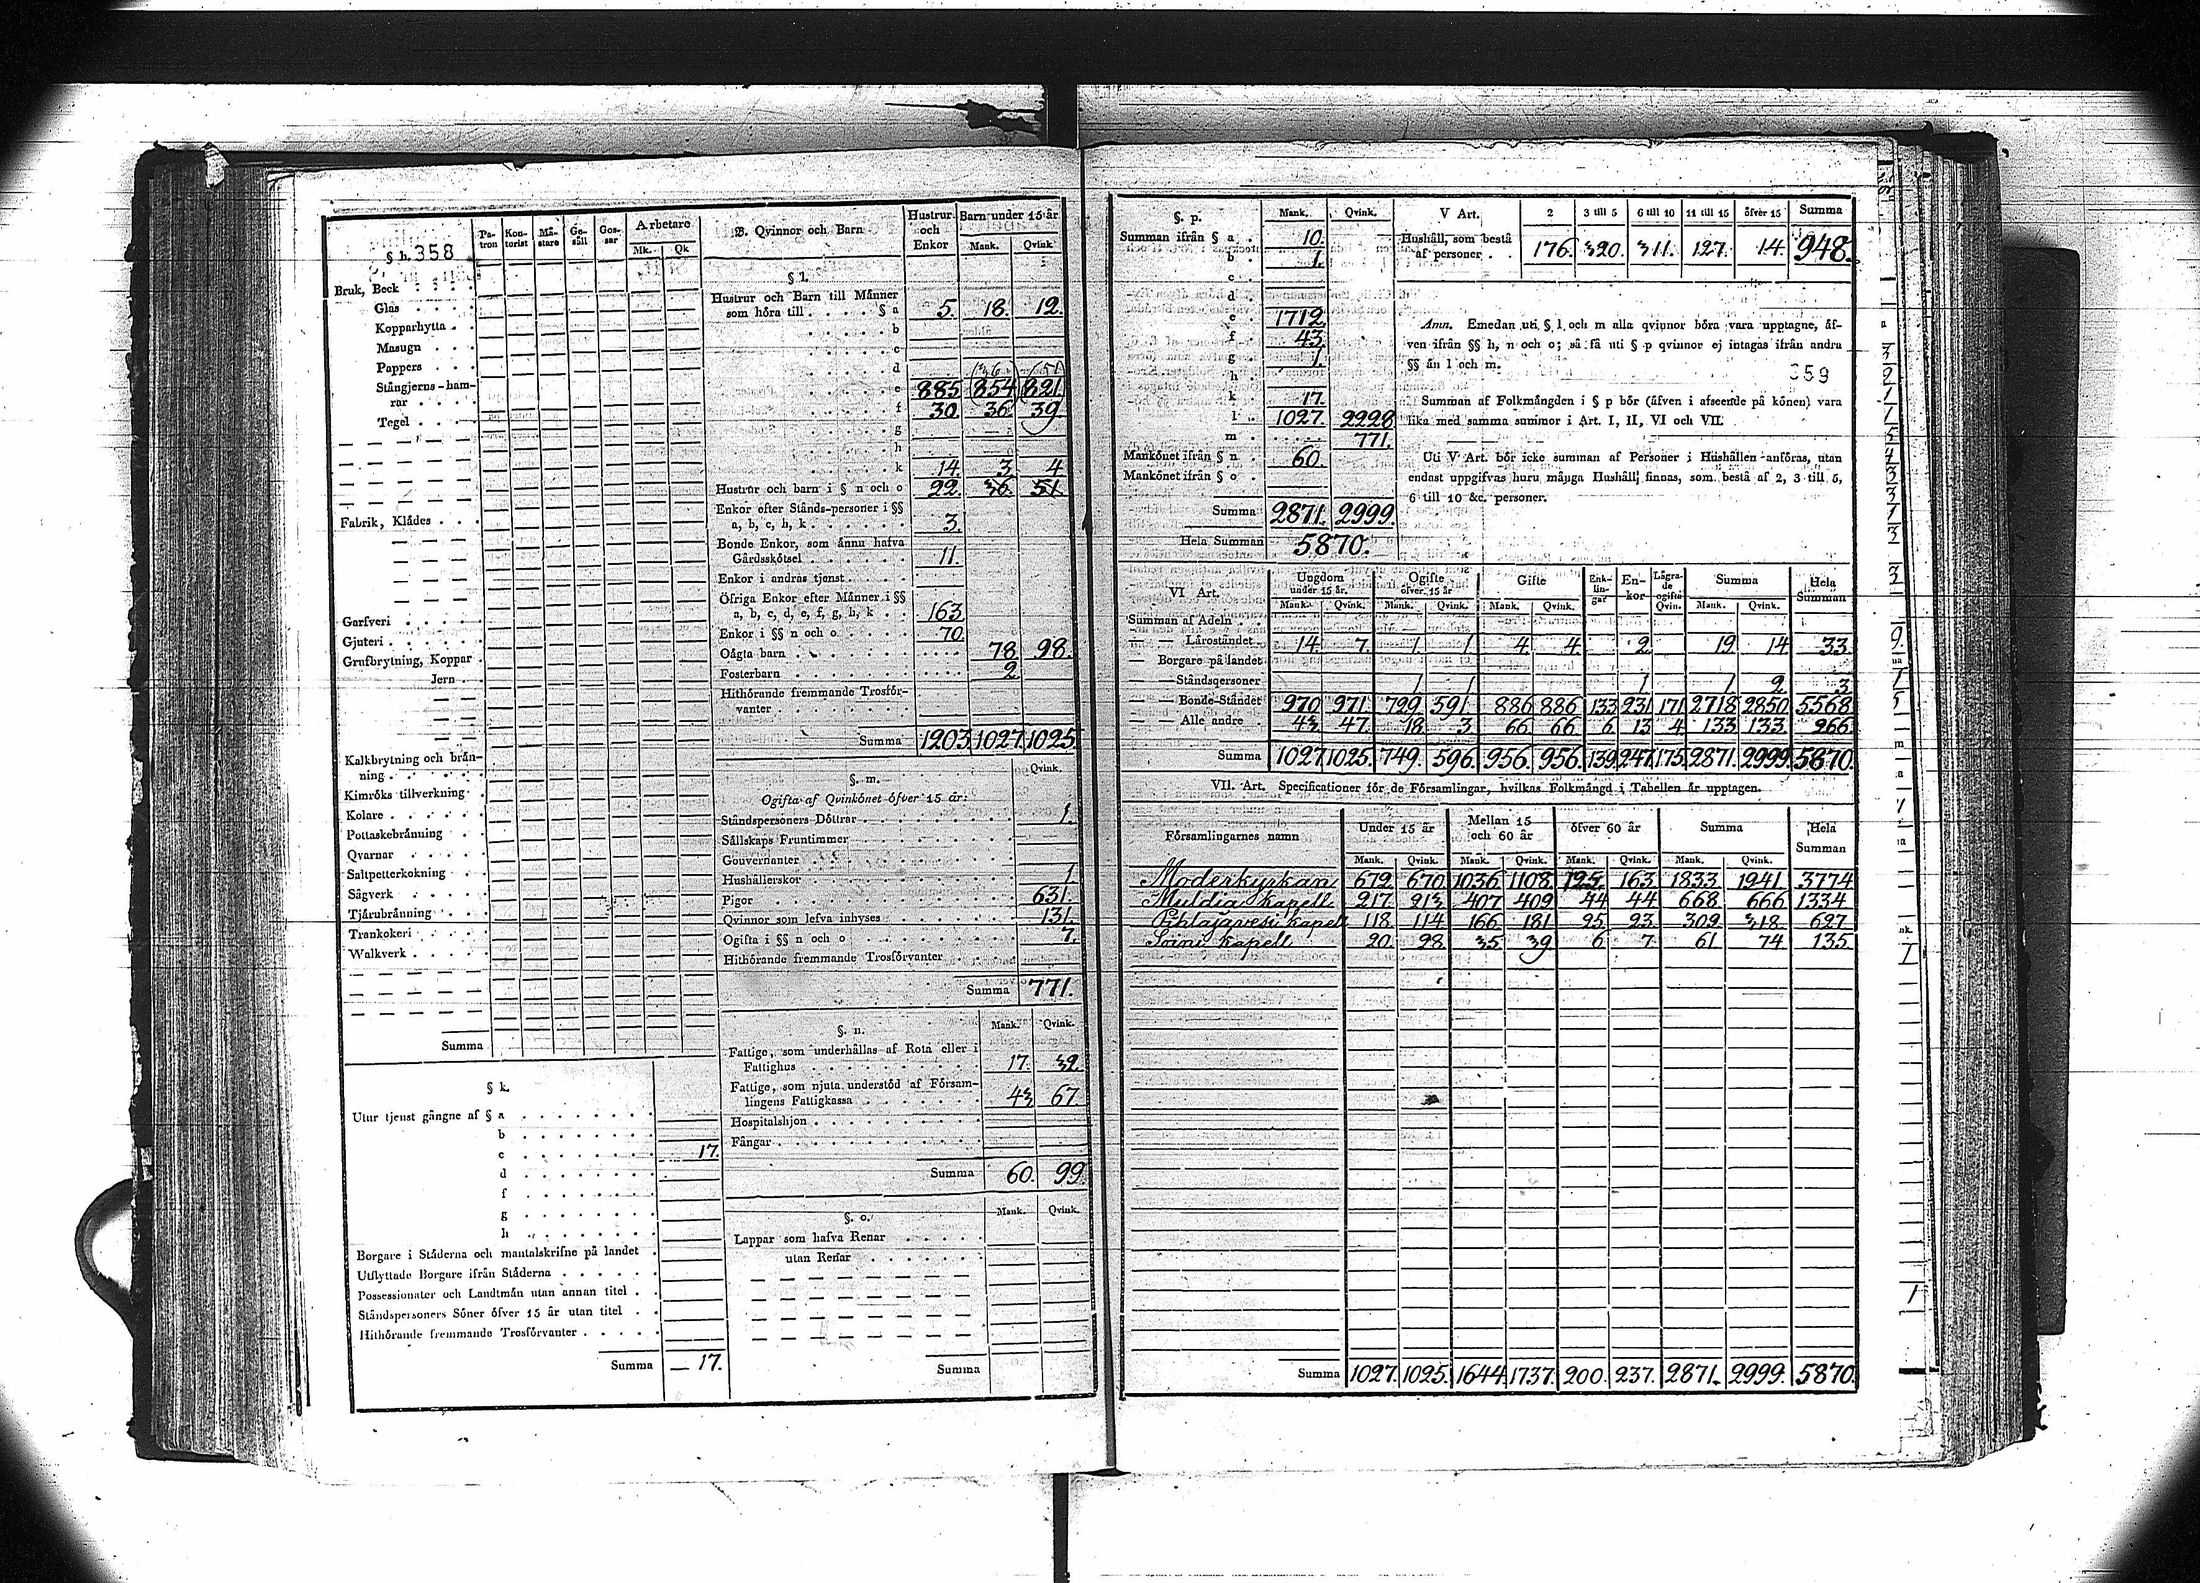 § h. 358
Pa-tron Kon-torist Mä-stare Ge-säll Gos-sar Arbetare
Mk. Qk
Bruk, Beck
Glas
Kopparhytta
Masugn
Pappers
Stångjerns-ham-
rar
Tegel
Fabrik, Klådes
Garfveri
Gjuteri
Grufbrytning, Koppar
Jern
Kalkbrytning och brån-
ning
Kimröks tillverkning
Kolare
Pottaskebränning
Qvarnar
Saltpetterkokning
Sågverk
Tjärubränning
Trankokeri
Walkverk
Summa
§ k.
Utur tjenst gångne af § a
b
c 17.
d
f
g
h
Borgare i Städerna och mantalskrifne på landet
Utflyttade Borgare ifrån Städerna
Possessionater och Landtmän utan annan titel
Ståndspersoners Söner öfver 15 år utan titel
Hithörande fremmande Trosförvanter
Summa 17.
B. Qvinnor och Barn
Hustrur och Enkor
Barn under 15 år
Mank. Qvink
§ l.
Hustrur och Barn till Männer
som höra till § a 5. 18. 12.
b
c
d
e 885 854 821
f 30. 36. 39
g
h
k 14. 3. 4
Hustrur och barn i § n och o 22. 36. 51.
Enkor efter Stånds-personer i §§
a, b, c, h, k 3.
Bonde Enkor, som ännu hafva
Gårdsskötsel 11.
Enkor i andras tjenst
Öfriga Enkor efter Männer i §§
a, b, c, d, e, f, g, h, k 163
Enkor i §§ n och o 70.
Oägta barn 78 98.
Fosterbarn 2
Hithörande fremmande Trosför-
vanter
Summa 1203. 1027. 1025.
§. m. Qvink.
Ogifta af Qvinkönet öfver 15 år:
Ståndspersoners Döttrar 1.
Sällskaps Fruntimmer
Gouvernanter
Hushållerskor 1
Pigor 631.
Qvinnor som lefva inhyses 131.
Ogifta i §§ n och o 7.
Hithörande fremmande Trosförvanter
Summa 771.
§. n. Mank. Qvink.
Fattige, som underhållas af Rota eller i
Fattighus 17. 32.
Fattige, som njuta understöd af Försam-
lingens Fattigkassa 43 67.
Hospitalshjon
Fångar
Summa 60. 99.
§. o. Mank. Qvink.
Lappar som hafva Renar
utan Renar
Summa
§. p. Mank. Qvink.
Summan ifrån § a 10.
b 1.
c
d
e 1712.
f 43.
g 1.
h
k 17.
l 1027. 2228
m 771.
Mankönet ifrån § n 60.
Mankönet ifrån § o
Summa 2871. 2999.
Hela Summan 5870.
V Art. 2 3 till 5 6 till 10 11 till 15 öfver 15 Summa
Hushåll, som bestå
af personer 176. 320. 311. 127. 14. 948.
Anm. Emedan uti § l och m alla qvinnor böra vara upptagne, äf-
ven ifrån §§ h, n och o; så få uti § p qvinnor ej intagas ifrån andra
§§ än l och m.
359
Summan af Folkmängden i § p bör (äfven i afseende på könen) vara
lika med samma summor i Art. I, II, VI och VII.
Uti V Art. bör icke summan af Personer i Hushållen anföras, utan
endast uppgifvas huru många Hushåll finnas, som bestå af 2, 3 till 5,
6 till 10 &c. personer.
VI Art. Ungdom under 15 år. Ogifte öfver 15 år Gifte Enk-lin-gar En-kor Lägra-de ogifta Qvin. Summa Hela Summan
Mank. Qvink. Mank. Qvink. Mank. Qvink. Mank. Qvink.
Summan af Adeln
— — Läroståndet 14. 7. 1 1 4 4 2 19 14 33.
— Borgare på landet
— — Ståndspersoner 1 1 1 1. 2 3.
— — Bonde-Ståndet 970 971 729 591 886 886 133 231 171 2718 2850 5568
— — Alle andre 43 47. 18 3 66 66 6 13 4 133. 133. 266.
Summa 1027 1025. 749. 596. 956. 956. 139. 247. 175. 2871. 2999. 5870.
VII. Art. Specificationer för de Församlingar, hvilkas Folkmängd i Tabellen är upptagen.
Församlingarnes namn Under 15 år Mellan 15 och 60 år öfver 60 år Summa Hela Summan
Mank. Qvink. Mank. Qvink. Mank. Qvink. Mank. Qvink.
Moderkyrkan 672 670 1036 1108 125. 163. 1833 1941. 3774
Muldia Kapell 217. 213. 407 409 44 44 668 666 1334
Pihlajavesi Kapell 118. 114 166 181 25 23. 309. 318. 627
Soini Kapell 20 28 35 39 6 7 61 74 135
Summa 1027. 1025. 1644. 1737. 200. 237. 2871. 2999. 5870.